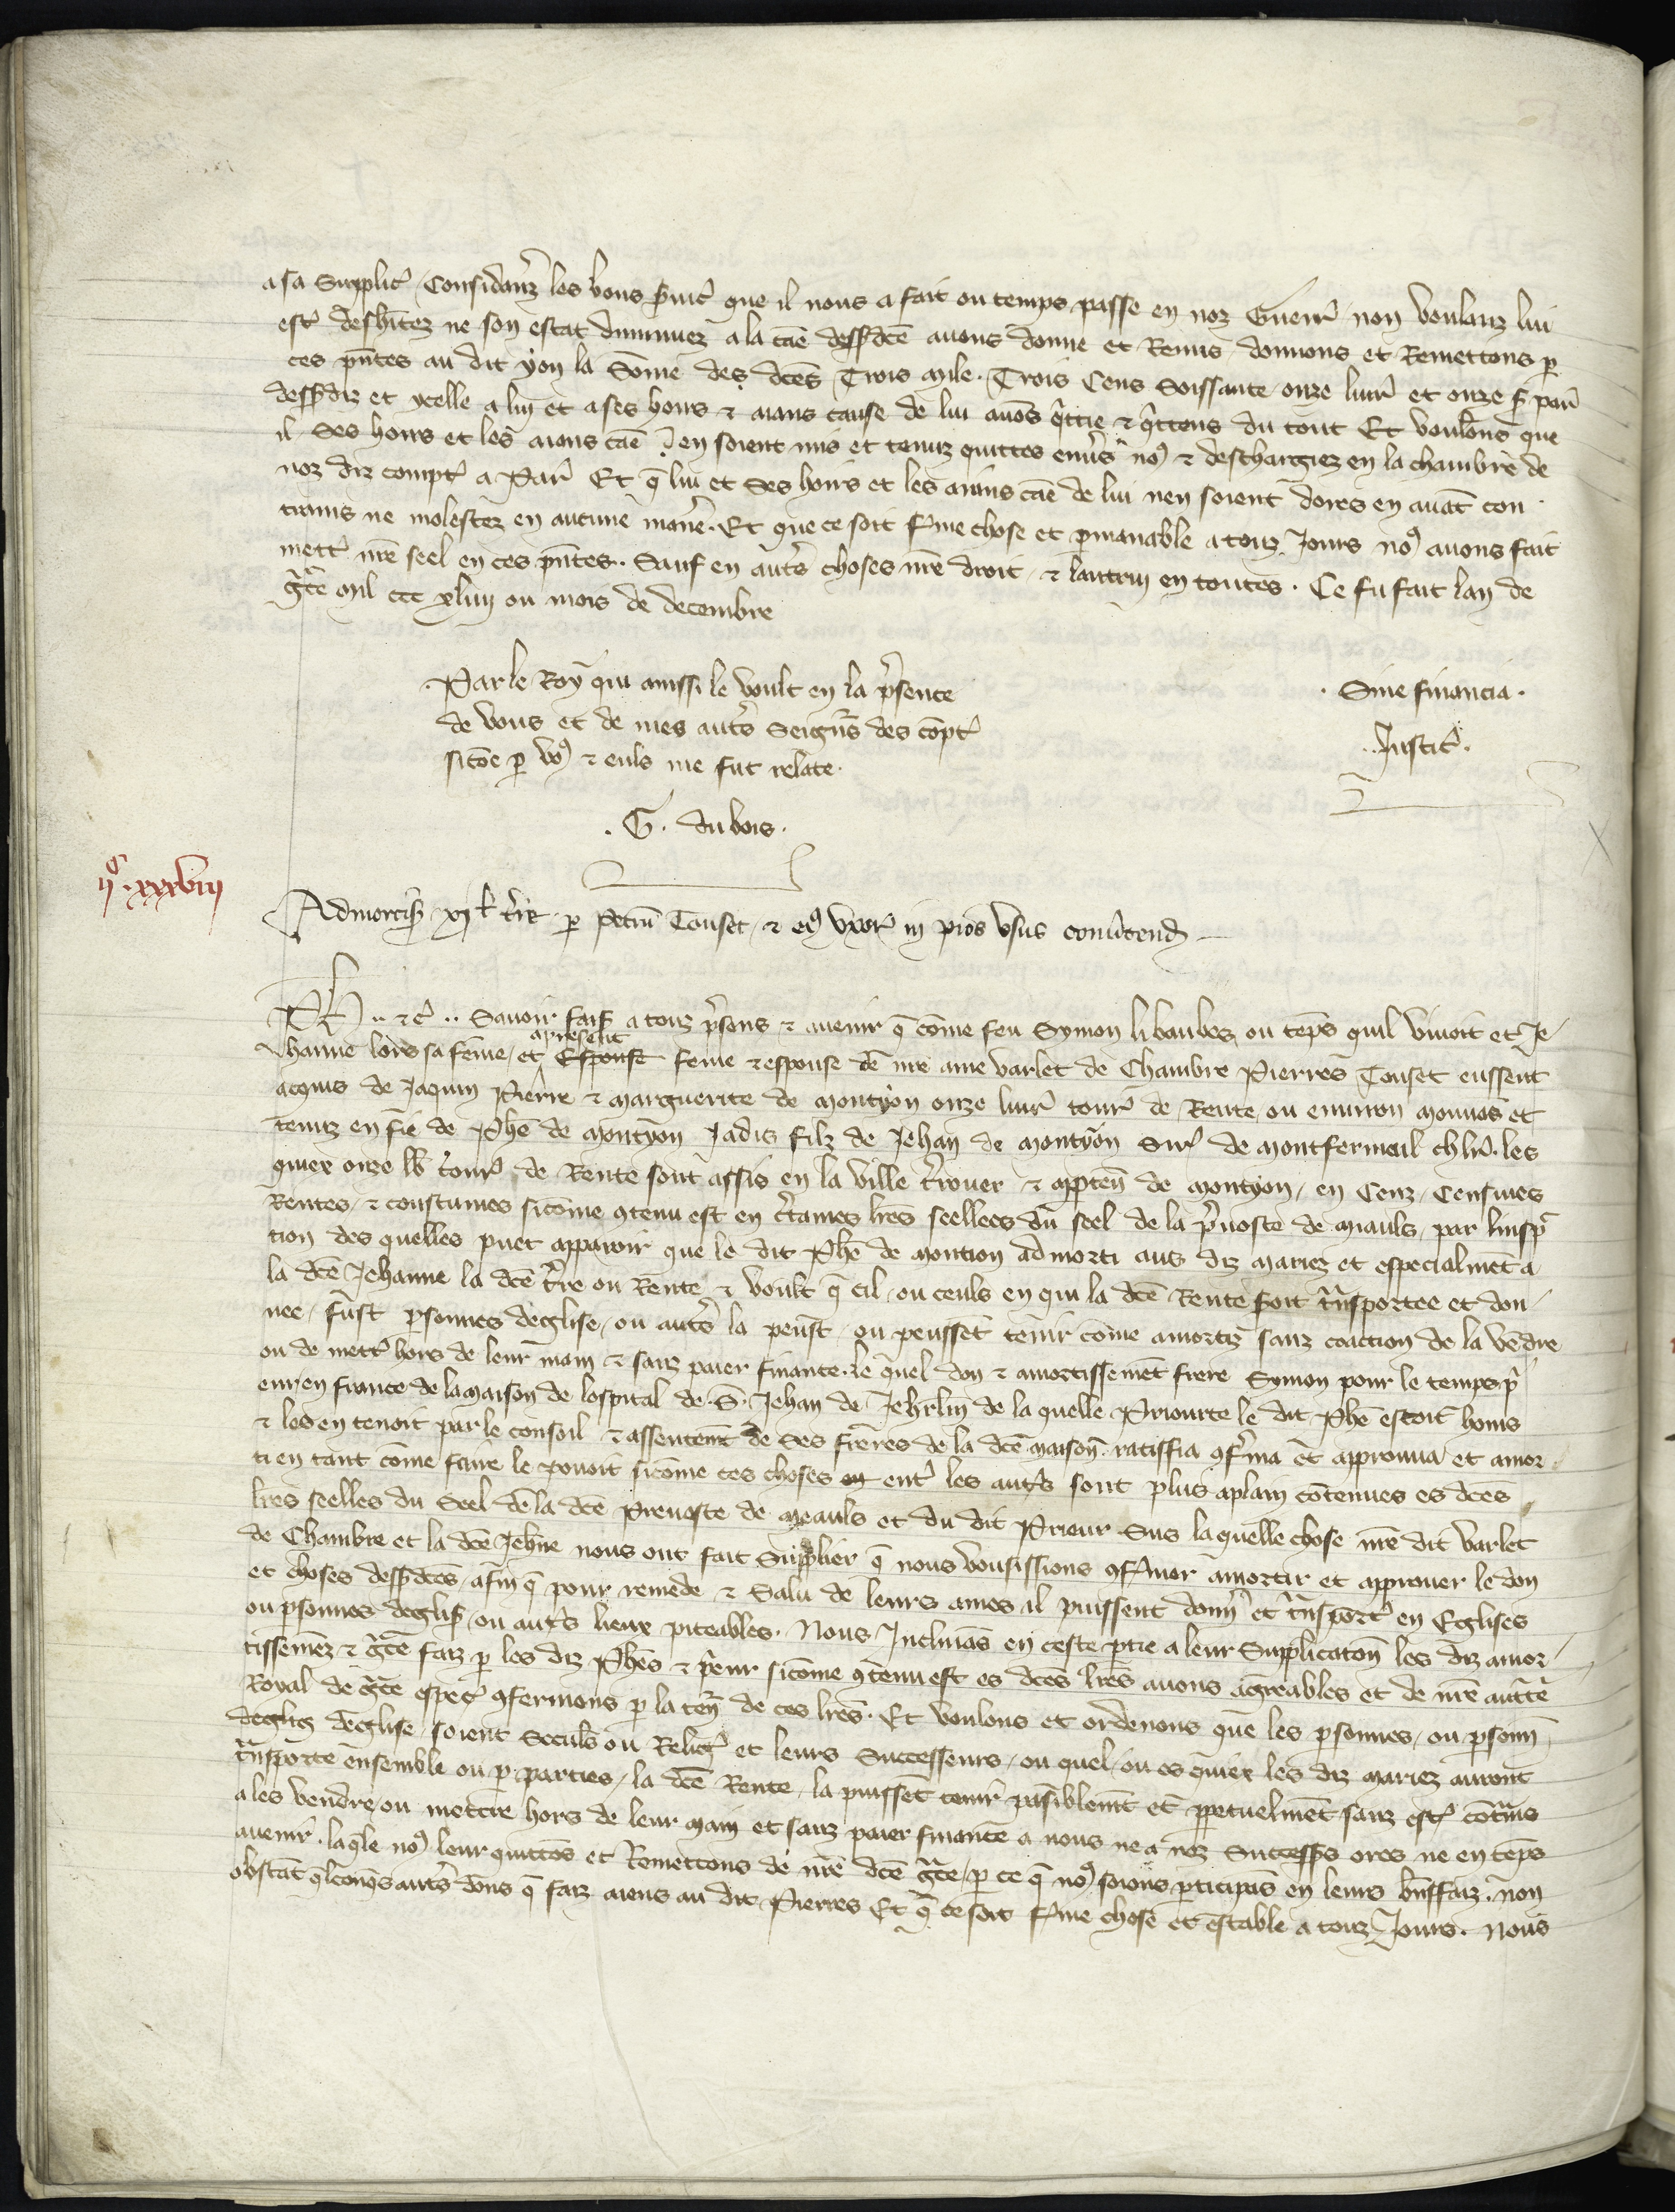 a sa Supplic̉ Considanz les bons suic̉ que il nous a fait ou temps passe en noz Guerr̉ non voulanz lui
estr̉ desh̃itez ne son estat diminuez a la cãe dessdc̃e auons donne et Remis donnons et Remettons p
ces p̃ntes au dit yon la Som̃e des dc̃es Trois Mile Trois Cens Soissante onze liur̉ et onze s̃ par̃
dessdiz et ycelle a lui et a ses hoirs ⁊ aians cause de lui auõs quittie ⁊ quittons du tout Et voulons que
il Ses hoirs et les aians cãe en soient mis et tenuz quittes enũs noꝰ ⁊ deschargiez en la chambre de
noz diz compt̉ a Par̃ Et q̃ lui et Ses hoirs et les aians cãe de lui nen soient dores en auãt con
trains ne molestez en aucune manẽ. Et que ce soit ferme chose et pmanable a touz Jours noꝰ auons fait
mettr̉ nr̃e seel en ces p̃ntes. Sauf en aut̃s choses nr̃e droit ⁊ lautrui en toutes. Ce fu fait lan de
gr̃ce mil ccc xliiij ou mois de decembre
Par le Roy qui aussi le voult en la p̃sence
de vous et de mes aut̃s Seign̄rs des cõpt̉
sicõe p voꝰ ⁊ euls me fut relate.
. G. du bois.
. Sine financia.
. Justic̉.
ijᶜ. xxxviij
Admortis̃ xj l̃ t̃r̃e p Petrũ Touset ⁊ eiꝰ vxor̉ in pios vsus conũtend̃
Ph̃ .. ⁊c̉ .. Sauoir fais̃ a touz p̃sens ⁊ auenir q̃ com̃e feu Symon li baubez ou tẽps quil viuoit et Je
hanne lors sa fem̃e, et apresent Espouse feme ⁊ espouse de nr̃e ame varlet de Chambre Pierres Touset eussent
acquis de Jaquin Pierre ⁊ Marguerite de Montyon onze liur̉ tour̉ de Rente ou enuiron mouuãs et
tenuz en fie de Phẽ de Montyon Jadis filz de Jehan de Montyon Sir̉ de Montfermeil ch̃lr̉. les
quiex onze lb̃ tour̉ de Rente sont assis en la ville t̃rouer ⁊ apptẽn de Montyon, en Cenz, Censiues
Rentes, ⁊ coustumes sicõme 9tenu est en ct̃aines lr̃es seellees du seel de la p̃uoste de Miauls, par linsp̃c
tion des quelles puet apparoir que le dit Phẽ de Montion admorti aus diz mariez et especialmẽt a
la dc̃e Jehanne la dc̃e t̃re ou Rente ⁊ voult q̃ cil, ou ceuls en qui la dc̃e Rente soit t̃nsportee et don
nee, fust psonnes deglise, ou aut̃s la peust ou peussẽt tenir com̃e amortiz sanz coaction de la vẽdre
ou de mettr̉ hors de leur main ⁊ sanz paier finance. le quel don ⁊ amortissemẽt frere Symon pour le temps p̃
eur en france de la maison de lospital de. S. Jehan de Jehr̃lm de la quelle Priourte le dit Phẽ estoit homs
⁊ les en tenoit par le conseil ⁊ assentemt̃ de Ses freres de la dc̃e maison. ratiffia 9fr̃ma et approuua et amor
ti en tant cõme faire le pouoit sicõme ces choses ou ent̉ les aut̃s sont plus aplain cõtenues es dc̃es
lr̃es seelles du Seel de la dc̃e Preuoste de Meauls et du dit Prieur. Sus la quelle chose nr̃e dit varlet
de Chambre et la dc̃e Jehñe nous ont fait Supplier q̃ nous vousissions 9fermer amortir et approuer le don
et choses dessdc̃es, afin q̃ pour remede ⁊ Salu de leurs ames il puissent donn̉ et t̃nsport̉ en Eglises
ou psonnes deglis̃ ou aut̃s lieux piteables. Nous Inclinãs en ceste ptie a leur Supplicatõn les diz amor
tissemẽz ⁊ gr̃ce faiz p les diz Phẽs ⁊ p̃eur sicõme 9tenu est es dc̃es lr̃es auons agreables et de nr̃e auct̃e
Royal de gr̃ce espec̉ 9fermons p la ten̉ de ces lr̃es. Et voulons et ordenons que les psonnes, ou psonñ
deglis deglise, soient Seculs̃ ou Relig̉ et leurs Successeurs, ou quel, ou es quiex les diz mariez auront
t̃nsporte ensemble ou p parties, la dc̃e Rente, la puissẽt tenir paisiblemt̃ et ppetuelmẽt sanz estr̉ cõt̃ins
a les vendre ou mettre hors de leur main et sanz paier finance a nous ne a noz Successrs̃ ores ne en tẽps
auenir. laq̃le noꝰ leur quittõs et Remettons de nr̃e dc̃e gr̃ce, p ce q̃ noꝰ soions pticipãs en leurs bñsfaiz. non
obstãt q̃lconq̃s aut̃s dõns q̃ faiz aiens au dit Pierres Et q̃ ce soit ferme chose et estable a touz Jours. Nous